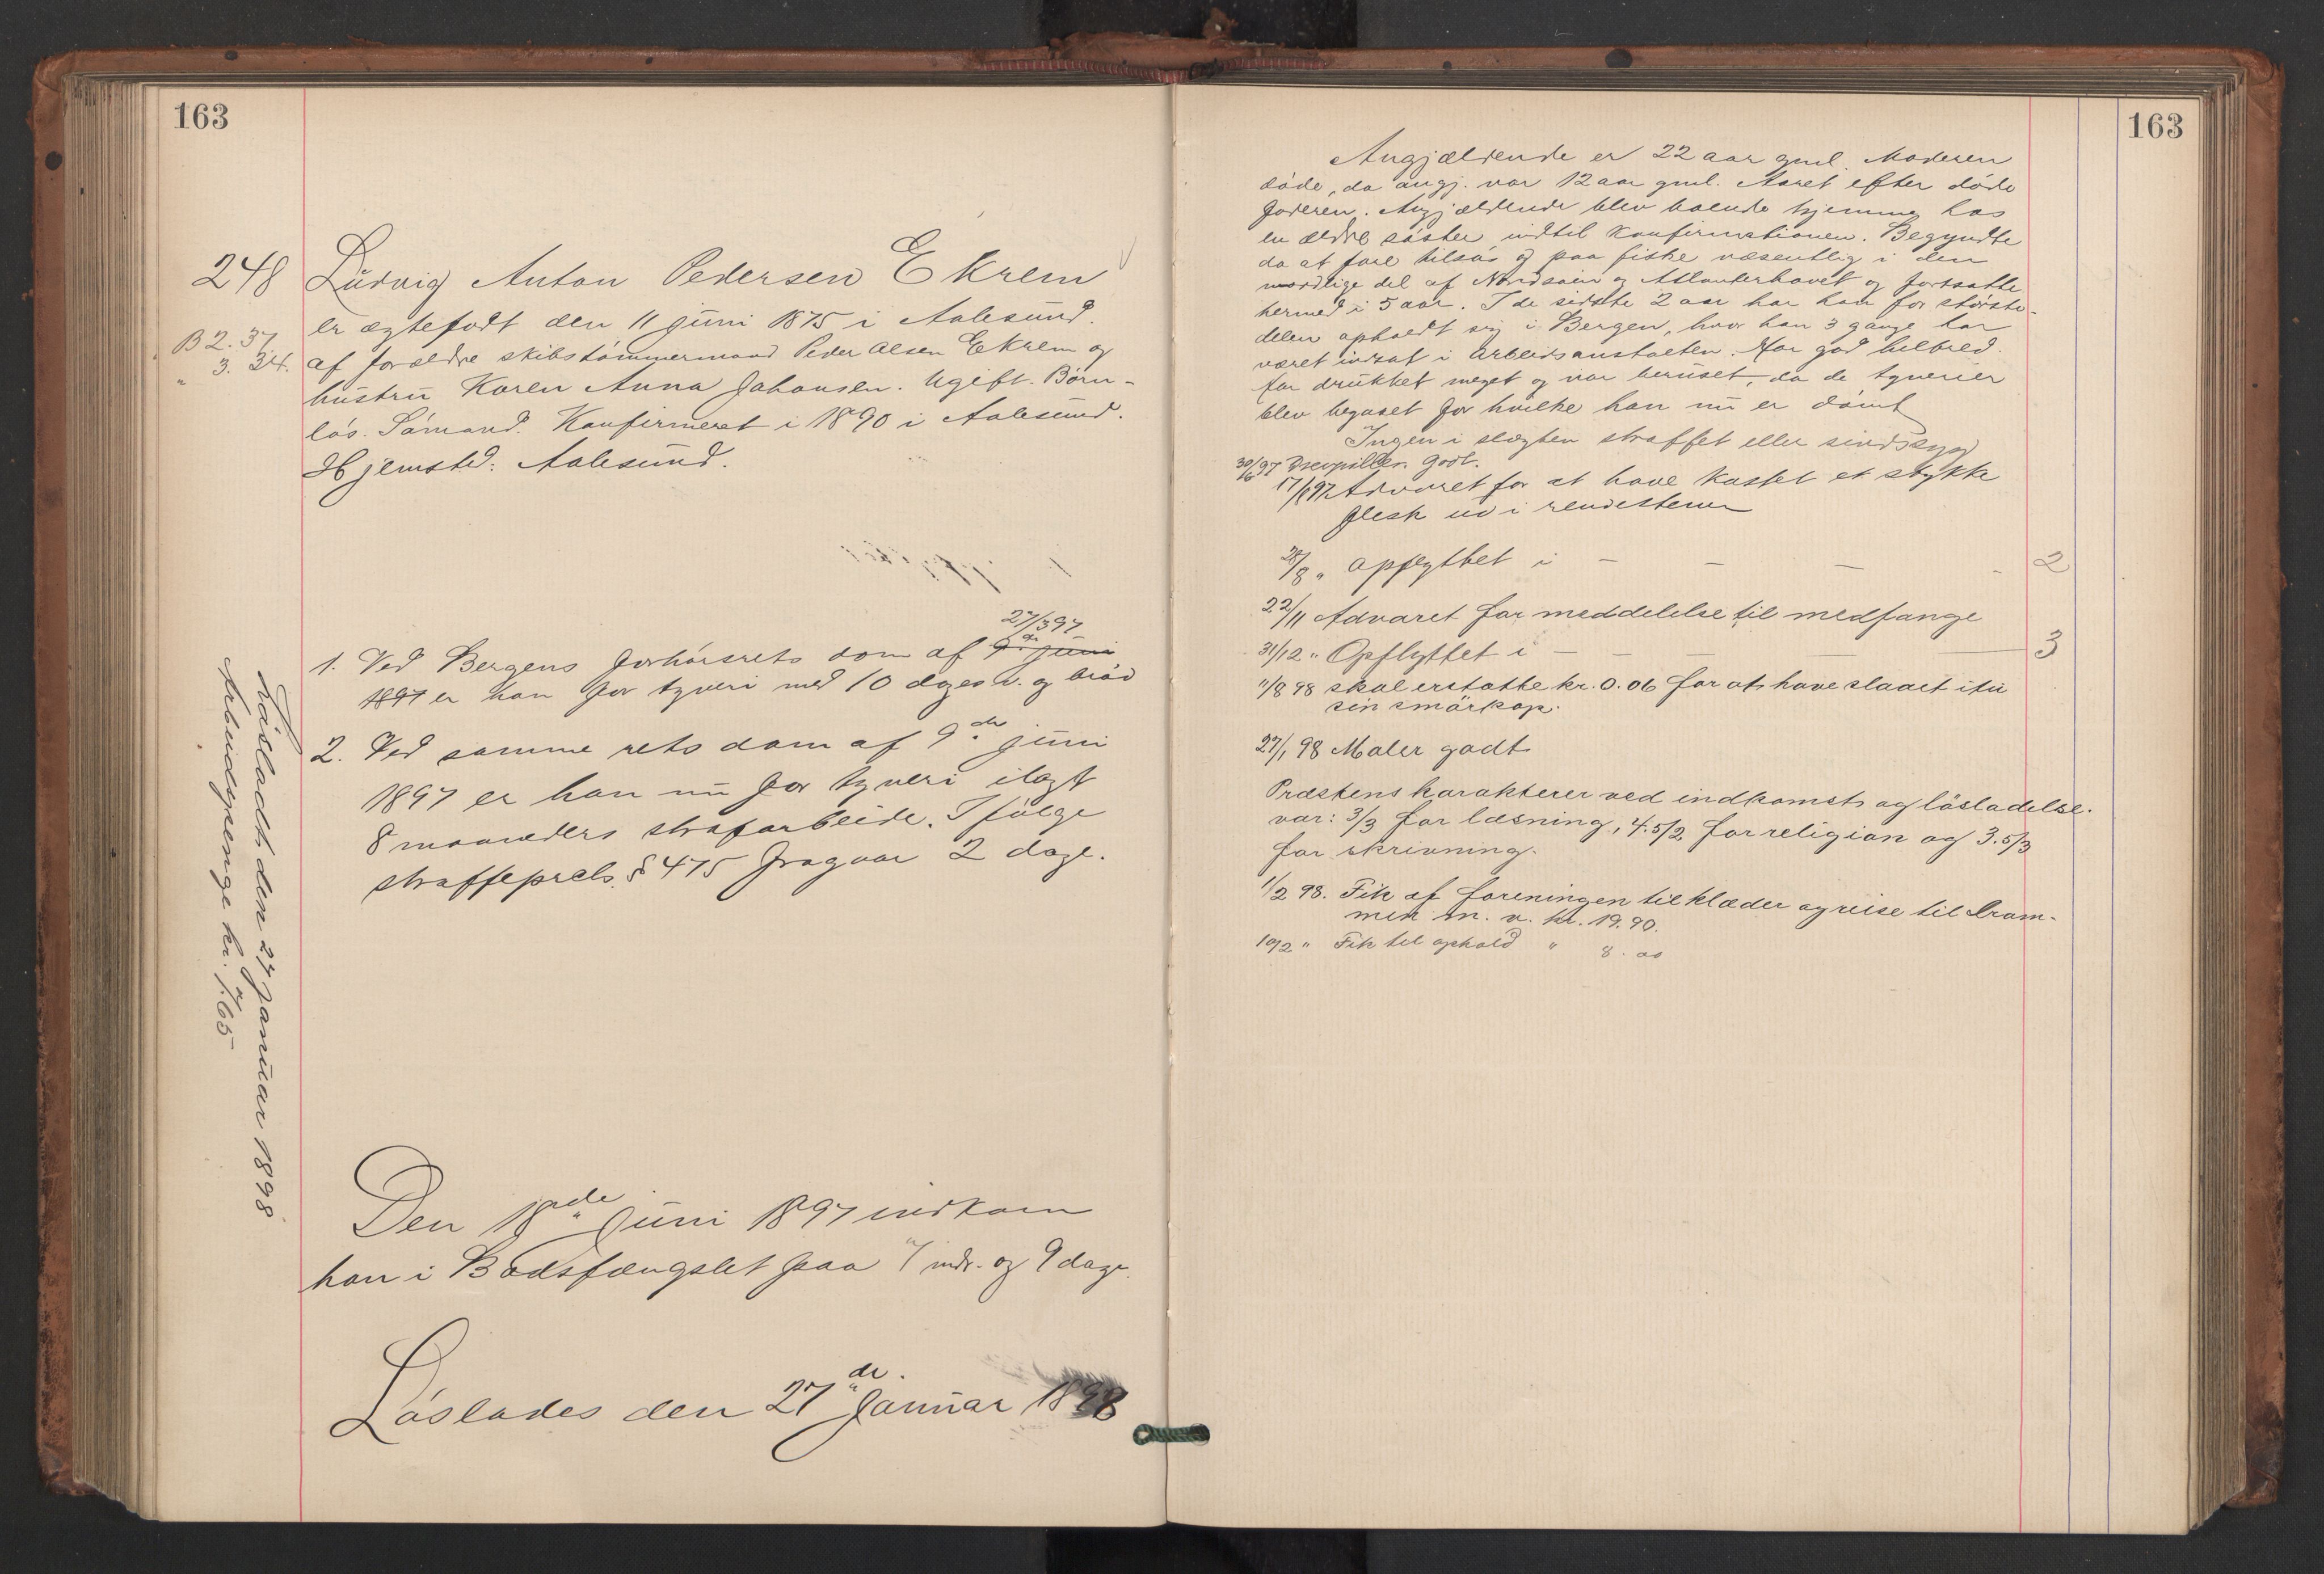 163
248
Lüdvig Anton Pedersen Ekrem
er ægtefødt den 11 jüni 1875 i Aalesünd.
B 2. 37
" 3. 34.
af forældre skibstømmermand Peder Olsen Ekrem og
hüstrü Karen Anna Johansen. Ugift. Børn-
løs. Sømand. Konfirmeret i 1890 i Aalesünd.
Hjemsted: Aalesünd.
27/3 97
1. Ved Bergens forhørsrets dom af 9de jüni
1897 er han for tyveri med 10 dages v. og brød
2. Ved samme rets dom af 9de jüni
1897 er han nü for tyveri ilagt
8 maaneders strafarbeide. Ifølge
straffeprcls. § 475 fragaar 2 dage.
Den 18de Jüni 1897 indkom
han i Bodsfængslet paa 7 mdr. og 9 dage.
Løslades den 27de Janüar 1898
Løsladt den 27 janüar 1898
Arbeidspenge kr. 7.65
163
Angjældende er 22 aar gml. Moderen
døde, da angj. var 12 aar gml. Aaret efter døde
faderen. Angjældende blev boende hjemme hos
en ældre søster indtil konfirmationen. Begyndte
da at fare tilsøs og paa fiske væsentlig i den
nordlige del af Nordsøen og Atlanterhavet og fortsatte
hermed i 5 aar. I de sidste 2 aar har han for største-
delen opholdt sig i Bergen, hvor han 3 gange har
været indsat i arbeidsanstalten. Har god helbred.
Har drükket meget og var berüset, da de tyverier
blev begaaet for hvilke han nü er dømt
Ingen i slægten straffet eller sindssyg
30/6 97 Drevpiller. Godt.
17/8 97 Advaret for at have kastet et stykke
flesk üd i rendestenen
28/8 " opflyttet i - - - - 2
22/11 Advaret for meddelelse til medfange
31/12 " Opflyttet i - - - - 3
11/8 98 skal erstatte kr. 0.06 for at have slaaet itü
sin smørkop.
27/1 98 Maler godt.
Præstens karakterer ved indkomst og løsladelse.
var: 3/3 for læsning, 4.5/2 for religion og 3.5/3
for skrivning.
1/2 98. Fik af foreningen til klæder og reise til Dram-
men m. v. kr. 19.90.
10/2 " Fik til ophold " 8.00